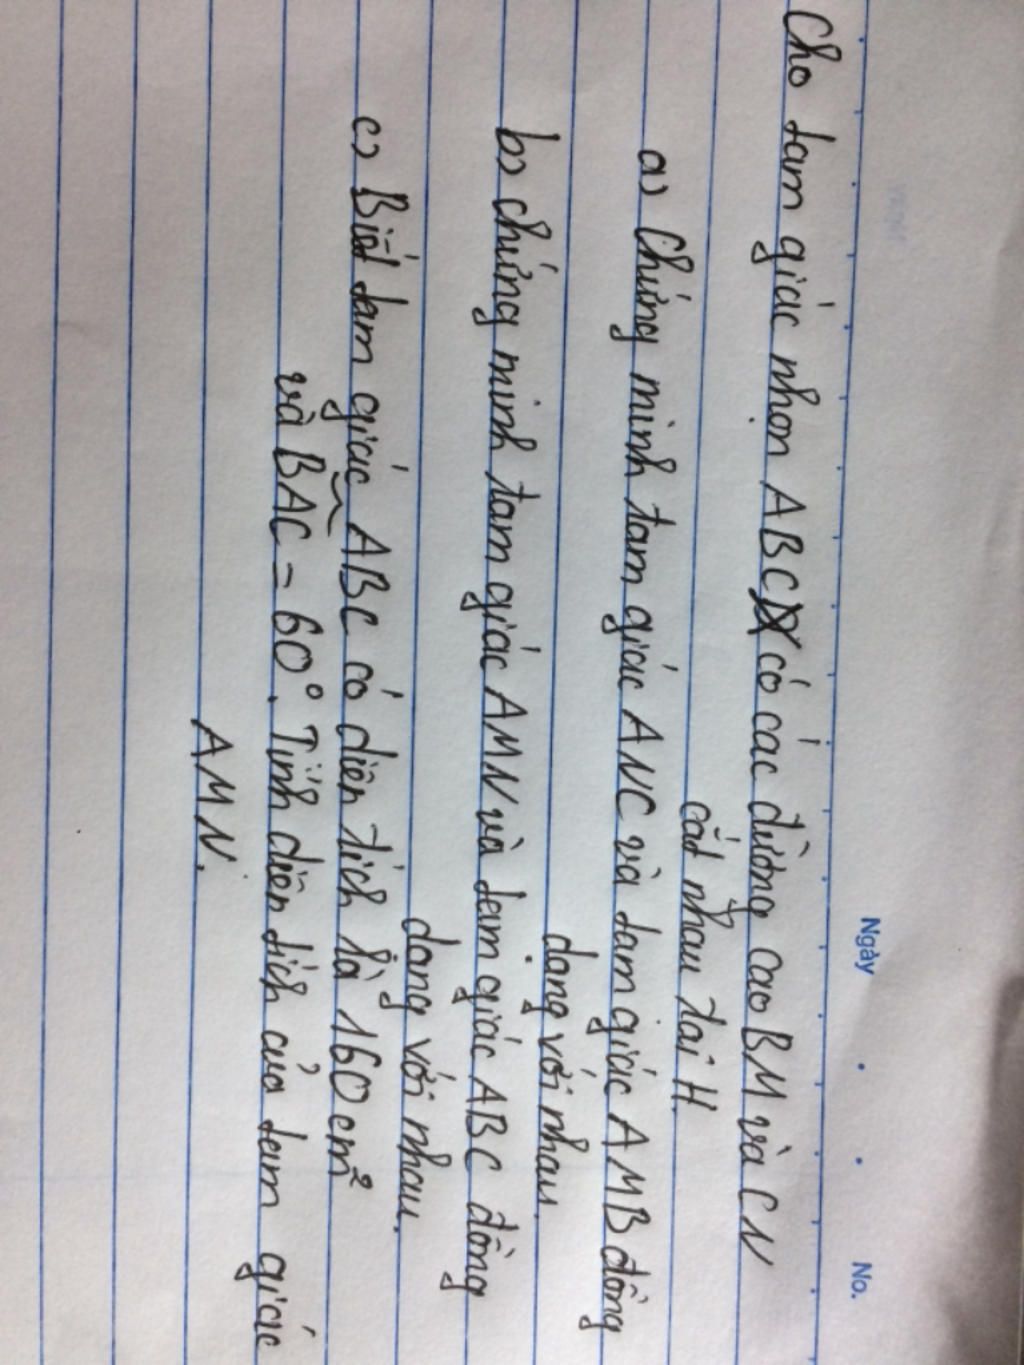 Ngày . . No.
Cho tam giác nhọn ABC có các đường cao BM và CN
cắt nhau tại H.
a) Chứng minh tam giác ANC và tam giác AMB đồng
dạng với nhau.
b) chứng minh tam giác AMN và tam giác ABC đồng
dạng với nhau.
c) Biết tam giác ABC có diện tích là 160cm²
và BAC = 60°. Tính diện tích của tam giác
AMN.